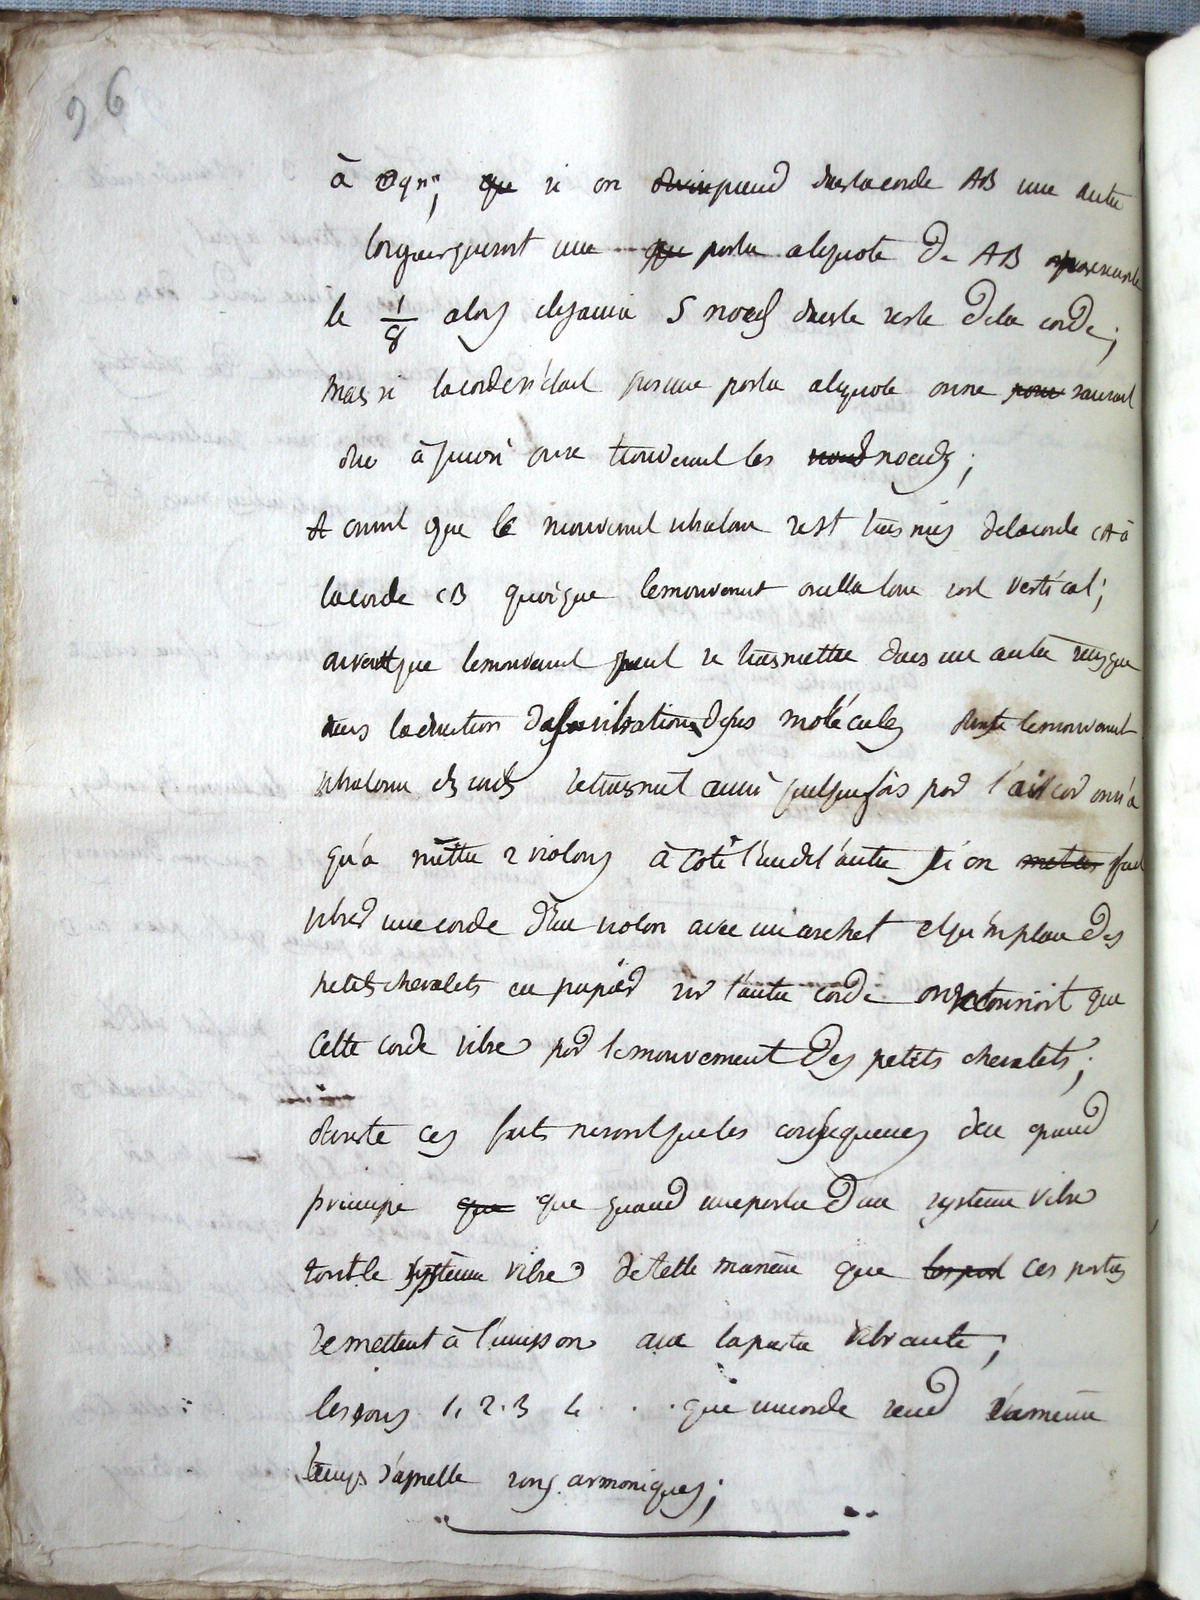 96
à que si on prend dans la corde AB une autre
longueur qui soit une que partie aliquote de AB
le 1/8 alors 5 noeuds dans le reste de la corde;
mais si la corde n'était pas une partie aliquote on ne pour saurait
dire à quoi on se trouverait les noeuds noeuds;
que le mouvement vibratoire est transmis de la corde CA à
la corde CB quoique le mouvement oscillatoire soit vertical;
avant que le mouvement peut se transmettre dans un autre sens que
dans la direction de la vibration de ses molécules le mouvement
vibratoire des cordes se transmet aussi quelquefois par l'air car on n'a
qu'à mettre 2 violons à coté l'un de l'autre si on mettre fait
vibrer une corde d'un violon avec un archet et qu'on place des
petits chevalets en papier sur l'autre corde on reconnoit que
cette corde vibre par le mouvement des petits chevalets;
du reste ces faits ne sont que les conséquences d'un grand
principe que que quand une partie d'un système vibre
tout le système vibre de telle manière que les part ces parties
se mettent à l'unisson avec la partie vibrante;
les sons 1. 2. 3 4 . . . que une corde rend en même
temps s'apelle sons armoniques;